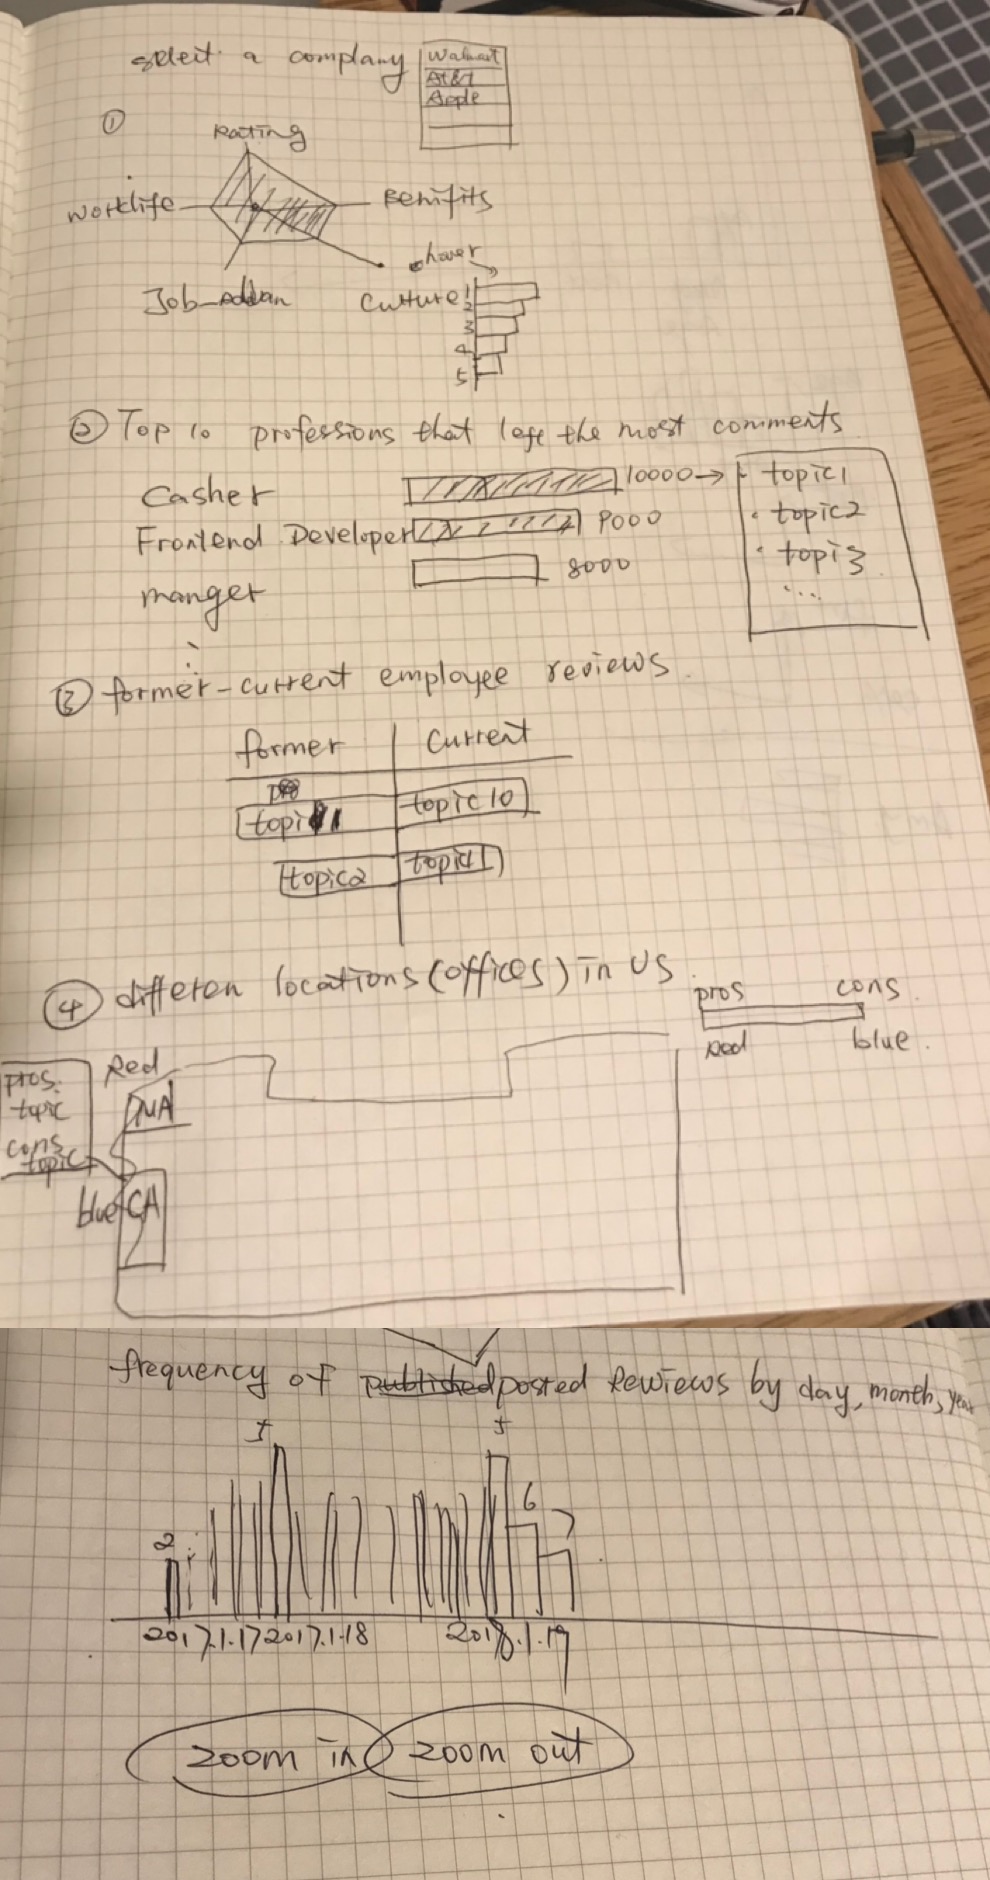 select a complany
Walmart
At&T
Apple
①
Rating
Worklife
Benifits
hover
Culture
1
2
3
4
5
② Top 10 professions that left the most comments
Casher
10000 →
Frontend Developer
9000
manger
8000
· topic1
· topic2
· topi3
...
③ former-current employee reviews.
former
current
topic10
topic2
④ differen locations (offices) in US
pros
cons
Red
blue.
Red
pros.
topic
cons
topic
blue
CA
frequency of published posted Rewiews by day, month, year
2
5
6
7
2017.1.17
2017.1.18
2018.1.19
zoom in
zoom out